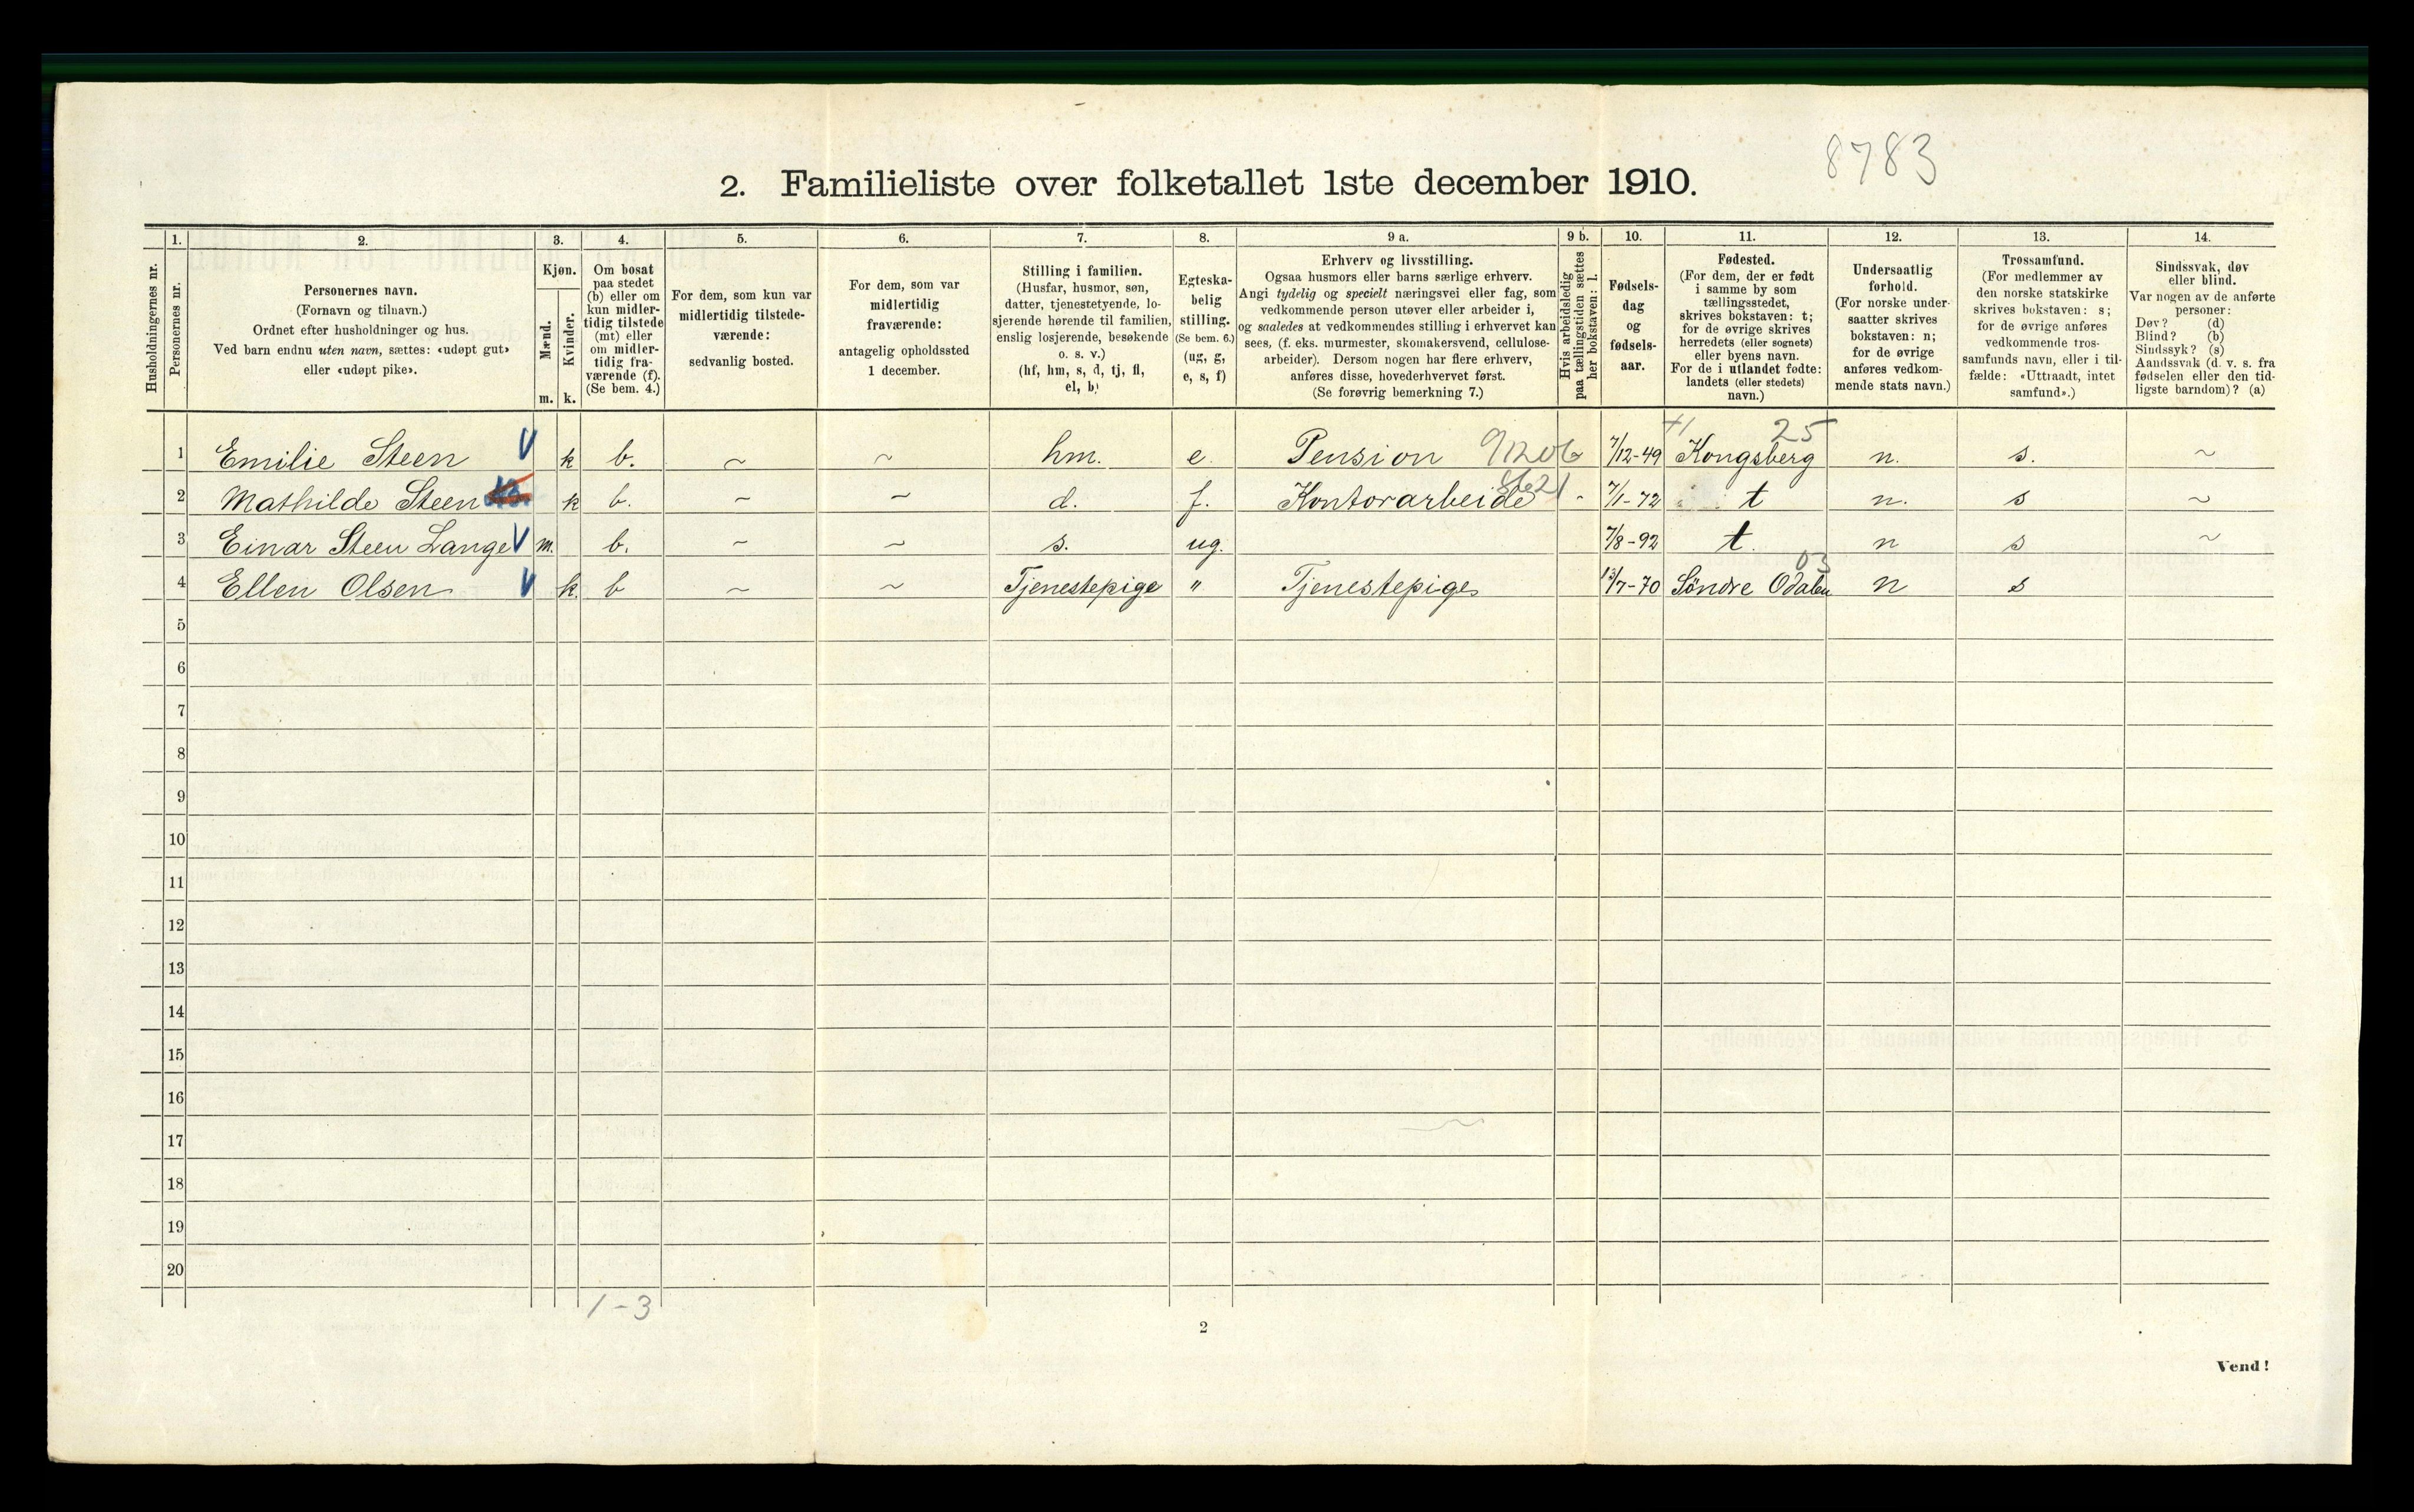 8783
2. Familieliste over folketallet 1ste december 1910.
Husholdningernes nr.
1. Personernes nr.
2. Personernes navn.
(Fornavn og tilnavn.)
Ordnet efter husholdninger og hus.
Ved barn endnu uten navn, sættes: «udøpt gut»
eller «udøpt pike».
3. Kjøn.
Mænd. m.
Kvinder. k.
4. Om bosat
paa stedet
(b) eller om
kun midler-
tidig tilstede
(mt) eller
om midler-
tidig fra-
værende (f).
(Se bem. 4.)
5. For dem, som kun var
midlertidig tilstede-
værende:
sedvanlig bosted.
6. For dem, som var
midlertidig
fraværende:
antagelig opholdssted
1 december.
7. Stilling i familien.
(Husfar, husmor, søn,
datter, tjenestetyende, lo-
sjerende hørende til familien,
enslig losjerende, besøkende
o. s. v.)
(hf, hm, s, d, tj, fl,
el, b)
8. Egteska-
belig
stilling.
(Se bem. 6.)
(ug, g,
e, s, f)
9 a. Erhverv og livsstilling.
Ogsaa husmors eller barns særlige erhverv.
Angi tydelig og specielt næringsvei eller fag, som
vedkommende person utøver eller arbeider i,
og saaledes at vedkommendes stilling i erhvervet kan
sees, (f. eks. murmester, skomakersvend, cellulose-
arbeider). Dersom nogen har flere erhverv,
anføres disse, hovederhvervet først.
(Se forøvrig bemerkning 7.)
9 b. Hvis arbeidsledig
paa tællingstiden sættes
her bokstaven: l.
10. Fødsels-
dag
og
fødsels-
aar.
11. Fødested.
(For dem, der er født
i samme by som
tællingsstedet,
skrives bokstaven: t;
for de øvrige skrives
herredets (eller sognets)
eller byens navn.
For de i utlandet fødte:
landets (eller stedets)
navn.)
12. Undersaatlig
forhold.
(For norske under-
saatter skrives
bokstaven: n;
for de øvrige
anføres vedkom-
mende stats navn.)
13. Trossamfund.
(For medlemmer av
den norske statskirke
skrives bokstaven: s;
for de øvrige anføres
vedkommende tros-
samfunds navn, eller i til-
fælde: «Uttraadt, intet
samfund».)
14. Sindssvak, døv
eller blind.
Var nogen av de anførte
personer:
Døv? (d)
Blind? (b)
Sindssyk? (s)
Aandssvak (d. v. s. fra
fødselen eller den tid-
ligste barndom)? (a)
1 Emilie Steen V k b. ~ ~ hm. e. Pension 91206 7/12-49 Kongsberg 25 n. s. ~
2 Mathilde Steen k b. ~ ~ d. f. Kontorarbeide - 7/1-72 t n. s ~
3 Einar Steen Lange V m. b. ~ ~ s. ug. 7/8-92 t. n s ~
4 Ellen Olsen V k. b ~ ~ Tjenestepige " Tjenestepige 13/7-70 Söndre Odalen 03 n s
5
6
7
8
9
10
11
12
13
14
15
16
17
18
19
20
1-3
2
Vend!